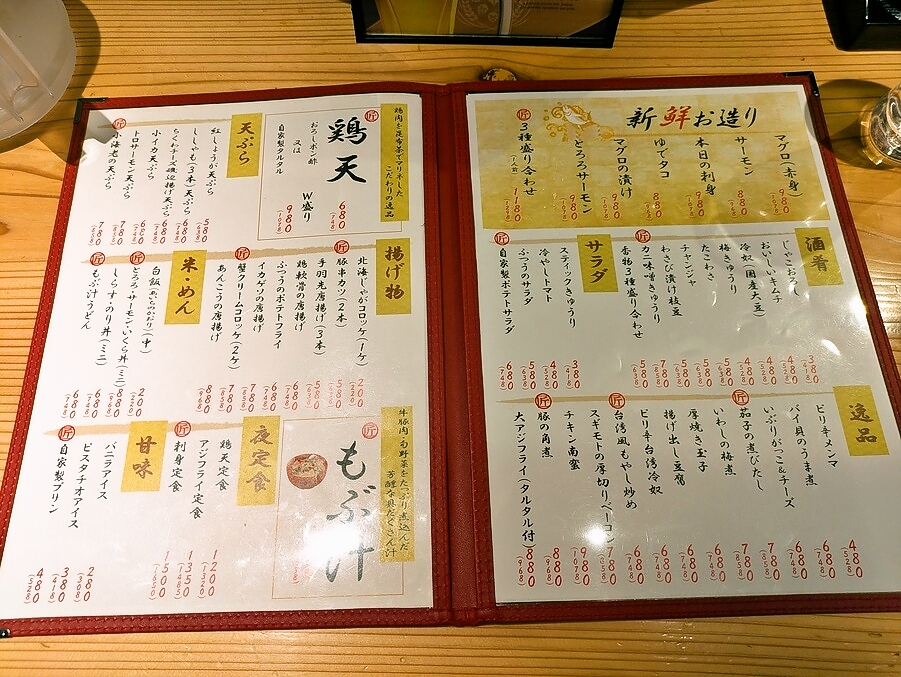 新鮮お造り
マグロ(赤身) 980
サーモン 880
本日の刺身 980
ゆでタコ
マグロの漬け 980
とろろサーモン 980
匠 3種盛り合わせ 1180
酒肴
じゃこおろし 380 (418)
おいしいキムチ 480 (528)
冷奴(国産大豆) 480 (528)
梅きゅうり 480 (528)
たこわさ 580 (638)
チャンジャ 580 (638)
わさび漬け枝豆 580 (638)
匠 カニ味噌きゅうり 580 (638)
香物3種盛り合わせ 580 (638)
サラダ
スティックきゅうり 380 (418)
冷やしトマト 480 (528)
匠 自家製ポテトサラダ 580 (638)
逸品
ピリ辛メンマ 480 (528)
バイ貝のうま煮 680 (748)
いぶりがっこ&チーズ 680 (748)
匠 茄子の煮びたし 780 (858)
いわしの梅煮 780 (858)
厚焼き玉子 680 (748)
揚げ出し豆腐 680 (748)
ピリ辛台湾冷奴 680 (748)
匠 台湾風もやし炒め 680 (748)
スギモトの厚切りベーコン
チキン南蛮 980
匠 豚の角煮 980
大アジフライ(タルタル付) 880 (968)
鶏肉を昆布茶でマリネしたこだわりの逸品
匠 鶏天 680
おろしポン酢
又は
自家製タルタル
W盛り 980
天ぷら
紅しょうが天ぷら 580 (638)
ししゃも(3本)天ぷら 680 (748)
ちくわチーズ磯辺揚げ天ぷら 680 (748)
小イカ天ぷら 680 (748)
トロサーモン天ぷら 780 (858)
匠 小海老の天ぷら 780 (858)
揚げ物
北海じゃがコロッケ(1ケ) 200 (220)
匠 豚串カツ(2本)
手羽先唐揚げ(3本) 580
鶏軟骨の唐揚げ 680
ふつうのポテトフライ
イカゲソの唐揚げ 680 (748)
匠 蟹クリームコロッケ(2ケ) 780 (858)
あんこうの唐揚げ 880 (968)
米・めん
白飯(あいちのかおり)(中) 200 (220)
匠 とろろ・サーモン・いくら丼(ミニ) 880 (968)
しらすのり丼(ミニ) 680 (748)
匠 もぶ汁うどん 680 (748)
牛豚肉、旬野菜をたっぷり煮込んだ芳醇な具だくさん汁
匠 もぶ汁
夜定食
鶏天定食 1200 (1320)
アジフライ定食 1350 (1485)
匠 刺身定食 1500 (1650)
甘味
バニラアイス 280 (308)
ピスタチオアイス 380 (418)
匠 自家製プリン 480 (528)